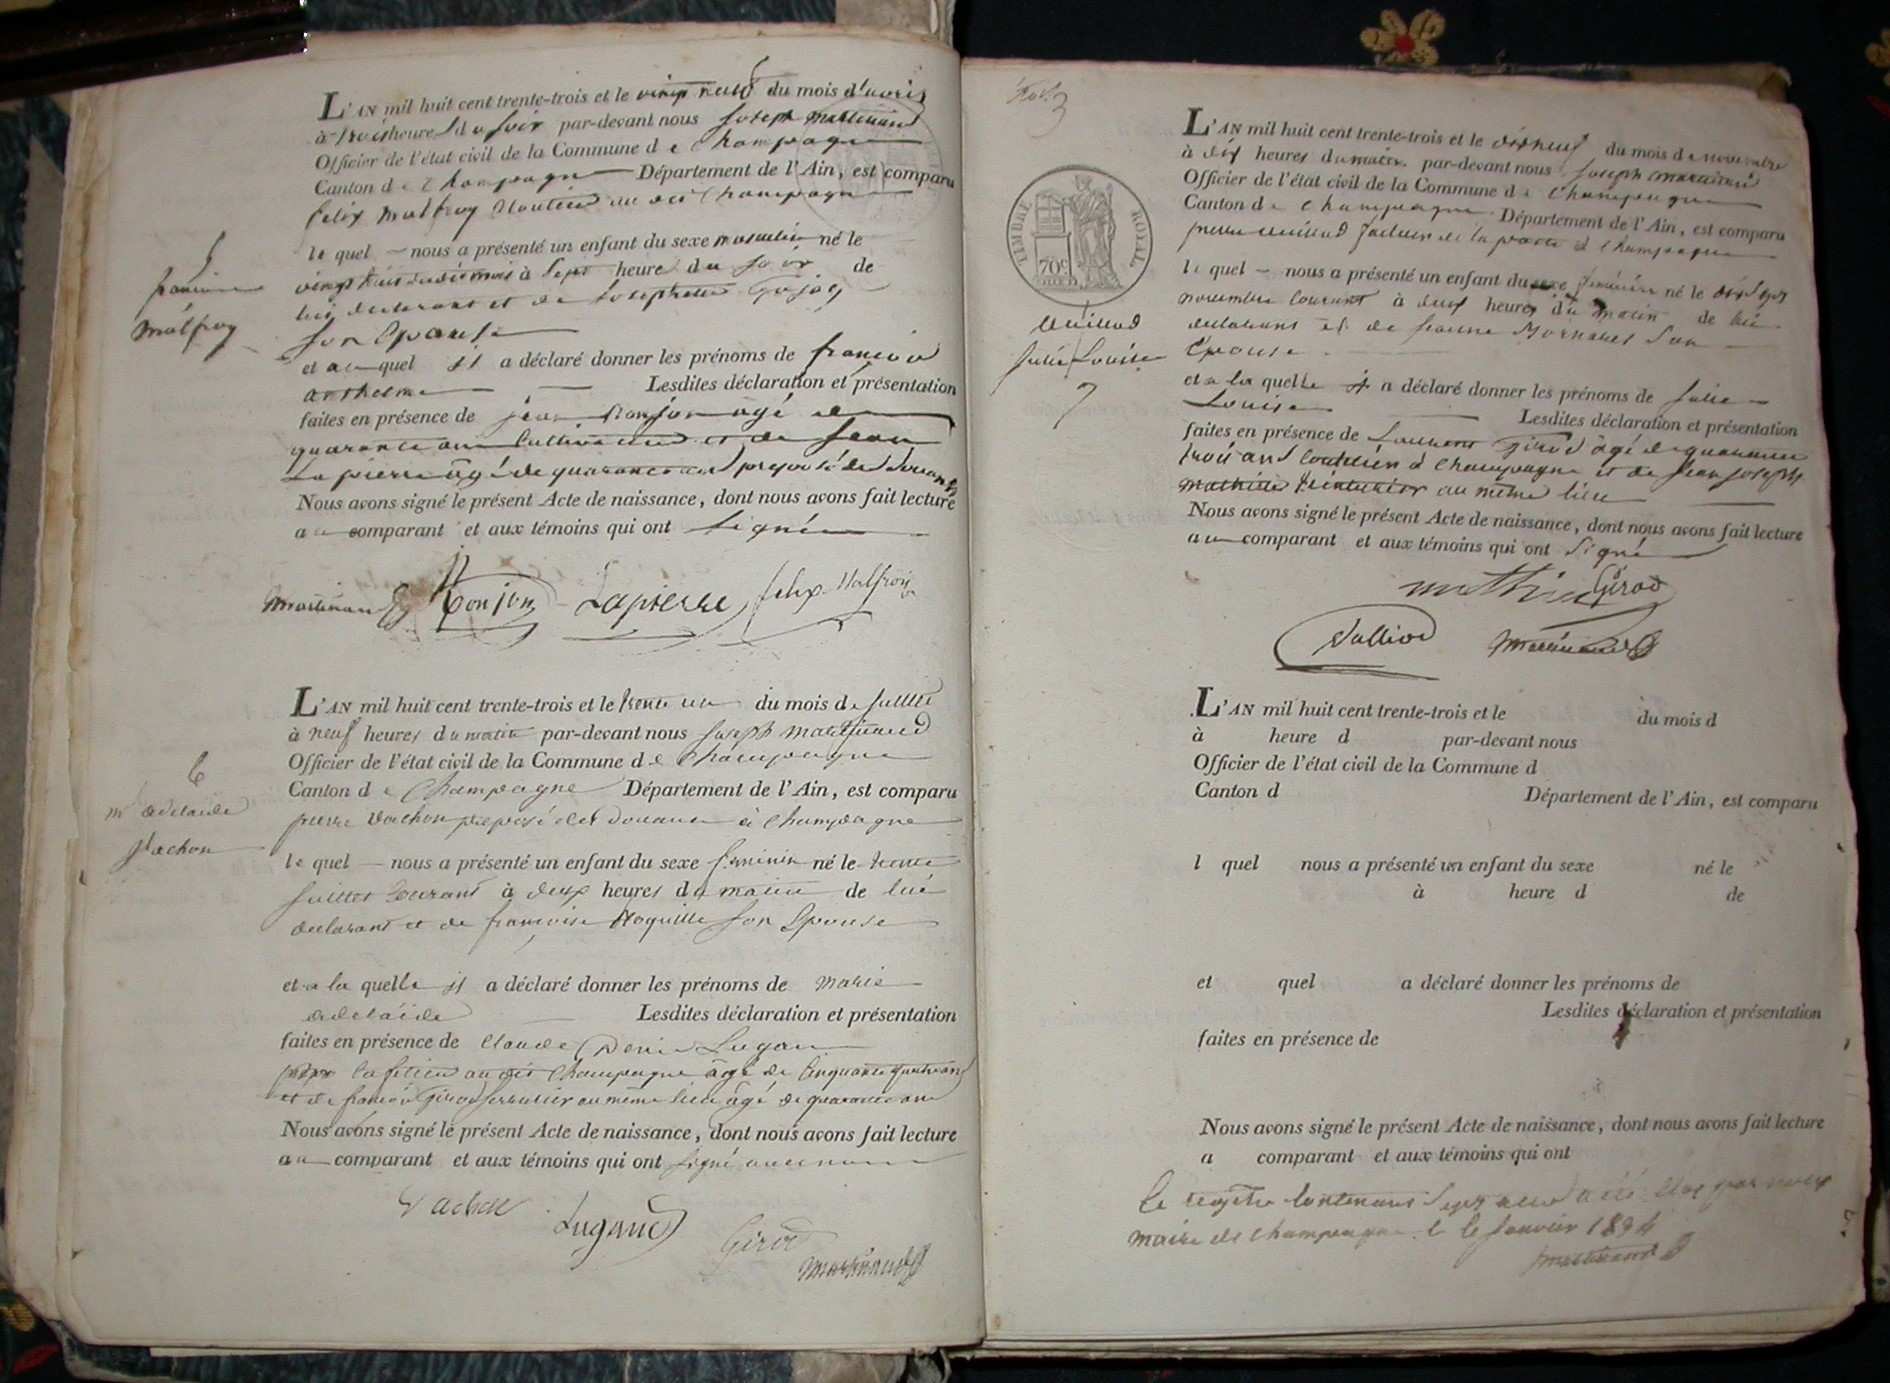 L'AN mil huit cent trente-trois et le vingt neuf du mois d'avril
à trois heures du soir par-devant nous Joseph martinand
Officier de l'état civil de la Commune de Champagne
Canton de Champagne Département de l'Ain, est comparu
felix malfroy au dit Champagne
le quel nous a présenté un enfant du sexe masculin né le
vingt huit du dit mois à Sept heures du soir de
lui declarant et de Josephette
son Epouse
et au quel il a déclaré donner les prénoms de françois
anthelme Lesdites déclaration et présentation
faites en présence de jean Bonjon agé de
quarante ans Cultivateur et de Jean
Lapierre âgé de quarante ans preposé des Douanes
Nous avons signé le présent Acte de naissance, dont nous avons fait lecture
au comparant et aux témoins qui ont Signé
Martinand Bonjon Lapierre felix Malfroy
5
françois
malfroy
L'AN mil huit cent trente-trois et le trente un du mois de Juillet
à neuf heures du matin par-devant nous Joseph Martinand
Officier de l'état civil de la Commune de Champagne
Canton de Champagne Département de l'Ain, est comparu
pierre Vachon preposé des Douanes à Champagne
le quel nous a présenté un enfant du sexe feminin né le trente
Juillet Courant à deux heures du matin de lui
declarant et de françoise son Epouse
et a la quelle il a déclaré donner les prénoms de marie
adelaïde Lesdites déclaration et présentation
faites en présence de Claude Denis Lugand
au dit Champagne âgé de Cinquante quatre ans
et de françois Girod serrurier au même lieu âgé de quarante ans
Nous avons signé le présent Acte de naissance, dont nous avons fait lecture
au comparant et aux témoins qui ont signé
Vachon Lugand Girod
Martinand
6
me adelaide
Vachon
3
L'AN mil huit cent trente-trois et le dixneuf du mois de novembre
à dix heures du matin par-devant nous Joseph Martinand
Officier de l'état civil de la Commune de Champagne
Canton de Champagne Département de l'Ain, est comparu
pierre facteur de la poste à Champagne
le quel nous a présenté un enfant du sexe feminin né le dixsept
novembre Courant à deux heures du matin de lui
declarant et de son
Epouse
et a la quelle il a déclaré donner les prénoms de Julie
Louise Lesdites déclaration et présentation
faites en présence de Laurent Girod âgé de quarante
trois ans à Champagne et de Jean Joseph
mathieu au même lieu
Nous avons signé le présent Acte de naissance, dont nous avons fait lecture
au comparant et aux témoins qui ont Signé
mathieu Girod
Martinand
TIMBRE ROYAL
70c
Julie Louise
7
L'AN mil huit cent trente-trois et le du mois d
à heure d par-devant nous
Officier de l'état civil de la Commune d
Canton d Département de l'Ain, est comparu
l quel nous a présenté un enfant du sexe né le
à heure d de
et quel a déclaré donner les prénoms de
Lesdites déclaration et présentation
faites en présence de
Nous avons signé le présent Acte de naissance, dont nous avons fait lecture
a comparant et aux témoins qui ont
le registre Contenant Sept actes a été Clos par nous
maire de Champagne le Janvier 1834
Martinand